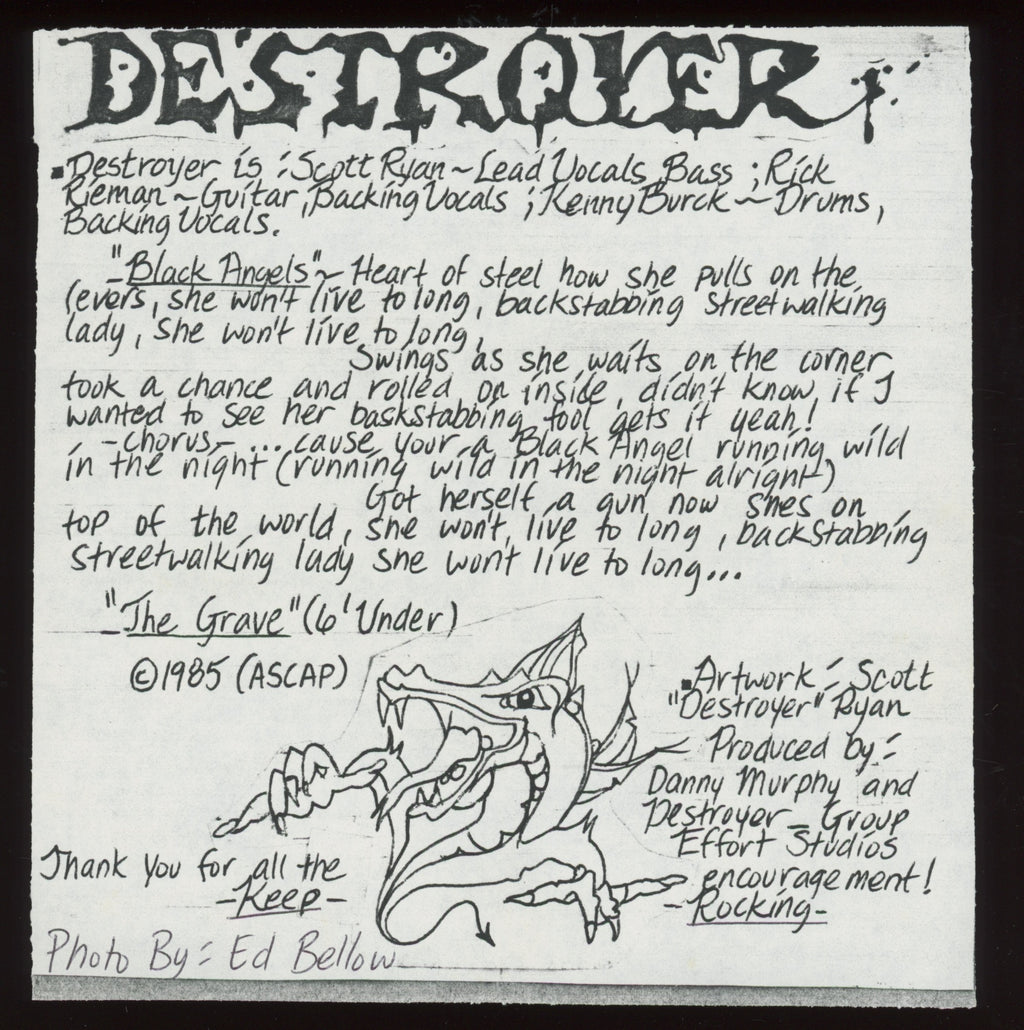 DESTROYER
Destroyer is : Scott Ryan ~ Lead Vocals, Bass ; Rick
Rieman ~ Guitar, Backing Vocals ; Kenny Burck ~ Drums,
Backing Vocals.
"Black Angels" ~ Heart of steel how she pulls on the
levers, she won't live to long, backstabbing streetwalking
lady, she won't live to long,
Swings as she waits on the corner
took a chance and rolled on inside, didn't know if I
wanted to see her backstabbing fool gets it yeah!
-chorus- ... cause your a Black Angel running wild
in the night (running wild in the night alright)
Got herself a gun now shes on
top of the world, she won't live to long, backstabbing
streetwalking lady she won't live to long...
"The Grave" (6' Under)
©1985 (ASCAP)
Artwork : Scott
"Destroyer" Ryan
Produced by :
Danny Murphy and
Destroyer - Group
Effort Studios
Thank you for all the encouragement!
-Keep- -Rocking-
Photo By : Ed Bellow